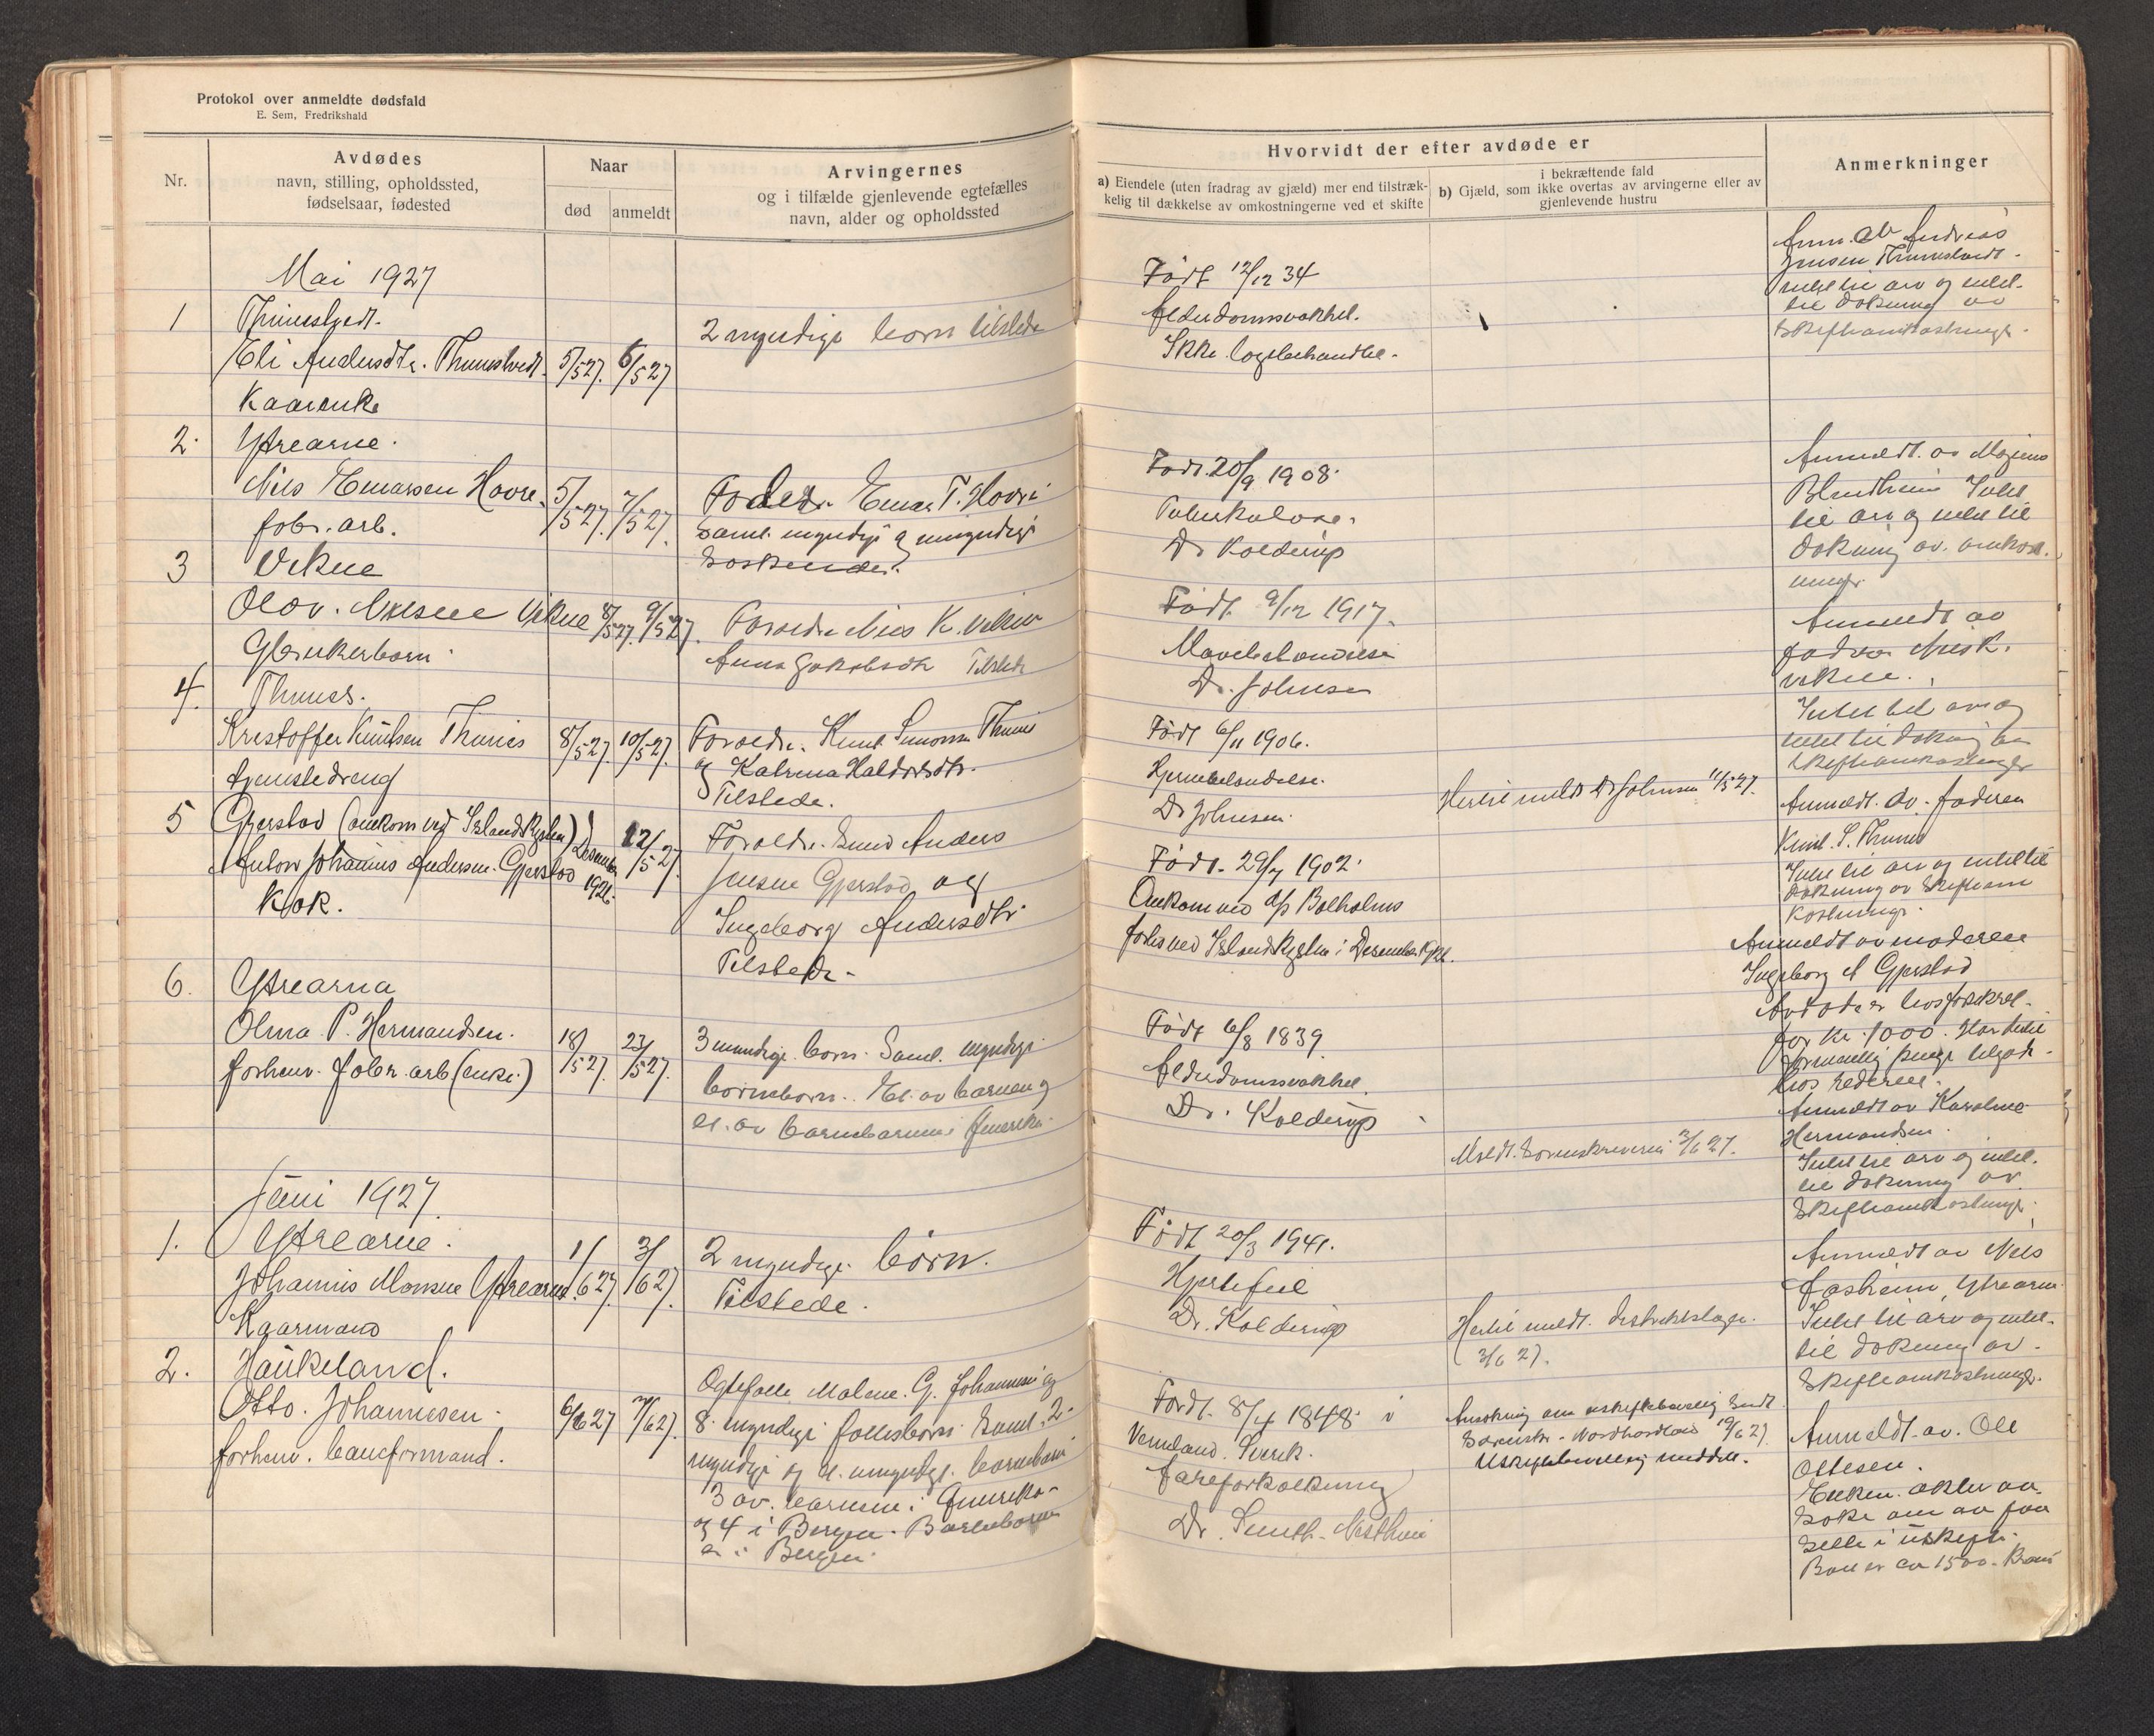 Protokol over anmeldte dødsfald
E. Sem, Fredrikshald
Nr.
Avdødes
navn, stilling, opholdssted,
fødselsaar, fødested
Naar
død
anmeldt
Arvingernes
og i tilfælde gjenlevende egtefælles
navn, alder og opholdssted
Hvorvidt der efter avdøde er
a) Eiendele (uten fradrag av gjæld) mer end tilstræk-
kelig til dækkelse av omkostningerne ved et skifte
i bekræftende fald
b) Gjæld, som ikke overtas av arvingerne eller av
gjenlevende hustru
Anmerkninger
Mai 1927
1
Eli Andersdtr.
Kaarenke
5/5 27. 6/5 27
2 myndige born tilstede
Født 12/12 34
Alderdomssvakhet.
Ikke lægebehandlet.
Anm. av Andreas
Jensen
intet til arv og intet
til dækning av
skifteomkostninger.
2.
Ytrearne.
Nils Einarsen Hovre.
fabr. arb.
5/5 27. 7/5 27.
Foreldr. Einar T. Hovre
samt myndige og umyndige
søskender.
Født. 20/9 1908.
Tuberkulose.
Dr Kolderup
Anmeldt av Mogens
Blindheim Intet
til arv og intet til
dækning av omkost-
ninger
3
Vikne
Olav Nilsen Vikne
8/5 27. 9/5 27.
Foreldre Nils K. Vikne
Anna Jakobsdtr Tilstede
Født 9/12 1917.
Dr. Johnsen
Anmeldt av
fadren Nils K.
Vikne.
Intet til arv og
intet til dækning av
skifteomkostninger
4.
Thunes.
Kristoffer Knutsen Thunes
tjenestedreng
8/5 27. 10/5 27.
Foreldre. Knut Simonsen Thunes
og Katrina Haldorsdtr.
Tilstede.
Født 6/11 1906.
Hjernebetændelse.
Dr Johnsen.
Hertil meldt Dr Johnsen 11/5 27.
Anmeldt. av. faderen
Knut. S. Thunes
Intet til arv og intet til
dækning av skifteom
kostninger.
5
Gjerstad (omkom ved Islandskysten)
Anton Johannes Andersen Gjerstad
Kok.
Desember 1926. 12/5 27.
Foreldr. Anders
Jensen Gjerstad og
Ingeborg Andersdtr
Tilstede.
Født. 29/7 1902.
Omkom ved d/s Balholms
forlis ved Islandskysten i Desember 1926.
Anmeldt av moderen
Ingeborg A Gjerstad
for kr. 1000. Har
hos rederiet.
6.
Ytrearna
Olina P. Hermandsen.
forhenv. fabr. arb (enke)
18/5 27. 23/5 27.
3 myndige born. Saml. myndige
barneborn. Et av barnen og
et av barnebarnene i Amerika.
Født 6/8 1839.
Alderdomssvakhet.
Dr. Kolderup
Meldt. Sorenskriveren 2/6 27.
Anmeldt av Karoline
Hermandsen.
Intet til arv og intet
til dækning av
skifteomkostninger.
Juni 1927.
1.
Ytrearne.
Johannis Monsen Ytrearne
Kaarmand
1/6 27. 3/6 27.
2 myndige børn.
Tilstede.
Født 20/3 1941.
Hjertefeil
Dr. Kolderup
Hertil meldt. distriktslæge.
3/6 27.
Anmeldt av Nils
Aasheim, Ytrearne
Intet til arv og intet
til dækning av
skifteomkostninger.
2.
Haukeland.
Otto. Johannesen.
forhenv. baneformand.
6/6 27 7/6 27.
Ogtefælle Malene. G. Johannesen og
8 myndige fællesborn. Saml. 2
myndige og et umyndige. barnebarn
3 av. barnene i Amerika.
og 4 i Bergen. Barnebarna
er i Bergen.
Født. 8/4 1848 i
Vermland. Sverk.
Aareforkalkning
Dr. Smith-Nesthun
Ansøkning om uskiftebevilling sendt
Sorenskr. Nordhordland 10/6 27.
Uskiftebevilling meddelt.
Anmeldt. av. Ole
Ottesen.
Enken. akter aa
søke om aa faa
sitte i uskifte.
Boet er ca 1500. kroner